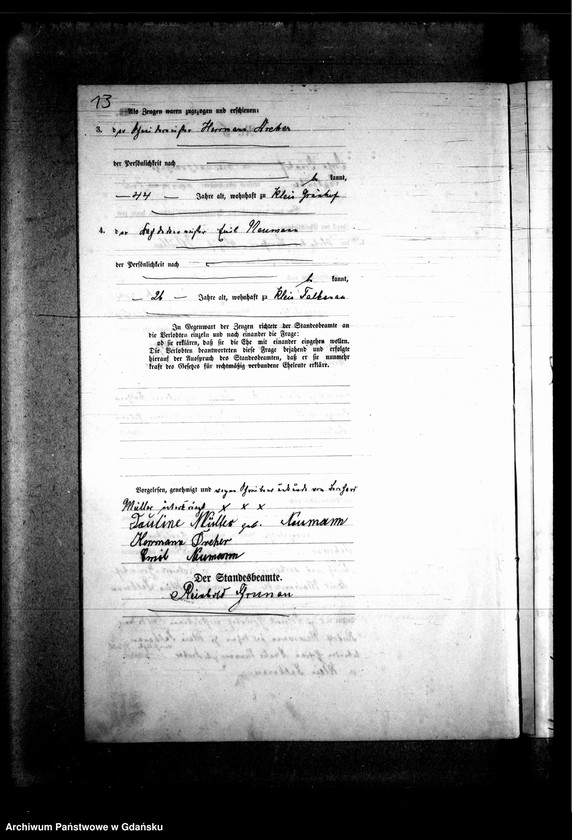 13
Als Zeugen waren zugezogen und erschienen:
3. der Herrmann Dreher
der Persönlichkeit nach
kannt,
44 Jahre alt, wohnhaft zu Klein
4. der Emil Neumann
der Persönlichkeit nach
kannt,
26 Jahre alt, wohnhaft zu Klein
In Gegenwart der Zeugen richtete der Standesbeamte an
die Verlobten einzeln und nach einander die Frage:
ob sie erklären, daß sie die Ehe mit einander eingehen wollen.
Die Verlobten beantworteten diese Frage bejahend und erfolgte
hierauf der Ausspruch des Standesbeamten, daß er sie nunmehr
kraft des Gesetzes für rechtmäßig verbundene Eheleute erkläre.
Vorgelesen, genehmigt und wegen von
Müller x x x
Pauline Müller geb. Neumann
Herrmann Dreher
Emil Neumann
Der Standesbeamte.
Reinhold Grunau
Archiwum Państwowe w Gdańsku